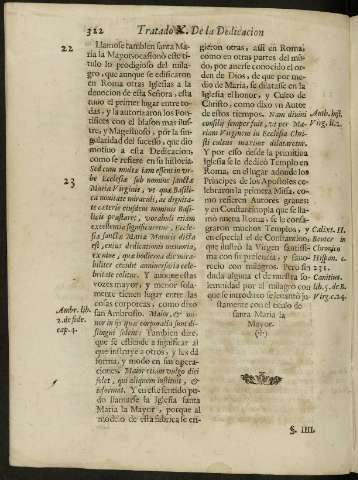 322 Tratado X. De la Dedicacion
22
Llamose tambien santa Ma-
ria la Mayor ocasionò este ti-
tulo lo prodigioso del mila-
gro, que aunque se edificaron
en Roma otras Iglesias à la
deuocion de esta Señora, esta
tuuo el primer lugar entre to-
das, y la autorizaron los Pon-
tifices con el blason mas ilus-
tre, y Magestuoso, por la sin-
gularidad del sucesso, que dio
motiuo à esta Dedicacion,
como se refiere en su historia.
23
Sed cum multæ iam essent in vr-
be Ecclesiæ sub nomine sanctæ
Mariæ Virginis, vt quæ Basili-
ca nouitate miraculi, ac dignita-
te cæteris eiusdem nominis Basi-
licis præstaret, vocabuli etiam
excellentia significaretur, Eccle-
sia sanctæ Mariæ Maioris dicta
est, cuius dedicationis memoria,
ex niue, quæ hodierna die mira-
biliter cecidit anniuersaria cele-
britate colitur. Y aunque estas
vozes mayor, y menor sola-
mente tienen lugar entre las
cosas corporeas, como dixo
san Ambrosio. Maior, & mi-
nor in ijs quæ corporalia sunt di-
stingui solent: Tambien dixe,
que se estiende à significar al
que instruye à otros, y les dà
forma, y modo en sus opera-
ciones. Maior etiam vulgo dici
solet, qui aliquem instituit, &
informat. Y en este sentido pu-
do llamarse la Iglesia santa
Maria la Mayor, porque al
modelo de esta fabrica se eri-
Ambr. lib.
2. de fide.
cap. 4.
gieron otras, assi en Roma,
como en otras partes del mũ-
do, por auerse conocido el or-
den de Dios, de que por me-
dio de Maria, se dilatasse en la
Iglesia el honor, y Culto de
Christo, como dixo vn Autor
de estos tiempos. Nam diuini
consilij semper fuit, vt per Ma-
riam Virginem in Ecclesia Chri-
sti cultus maximè dilataretur.
Y por esso desde la primitiua
Iglesia se le dedicò Templo en
Roma, en el lugar adonde los
Principes de los Apostoles ce-
lebraron la primera Missa, co-
mo refieren Autores graues:
y en Constantinopla que se lla-
mò nueua Roma, se le consa-
graron muchos Templos, y
en especial el de Constantino,
que ilustrò la Virgen santissi-
ma con su presencia, y fauo-
reciò con milagros. Pero sin
duda alguna el de nuestra so-
lemnidad por al milagro con
que se introduxo se leuantò ju-
stamente con el titulo de
santa Maria la
Mayor.
(✠)
Virg. li. 2.
Calixt. II.
Chronico
Hispan. c.
251.
lib. 5. de B.
Virg. c. 24.
§. IIII.